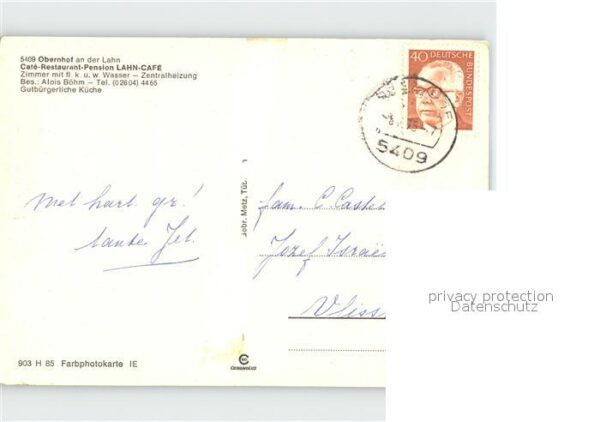 5409 Obernhof an der Lahn
Café-Restaurant-Pension LAHN-CAFE
Zimmer mit fl. k. u. w. Wasser – Zentralheizung
Bes.: Alois Böhm – Tel. (02604) 4465
Gutbürgerliche Küche
40
DEUTSCHE BUNDESPOST
5409
Met hart. gr!
tante Jet.
fam. C Castel
Jozef Israë
Vliss
ebr. Metz, Tüb
privacy protection
Datenschutz
903 H 85 Farbphotokarte IE
CEKAWERKE